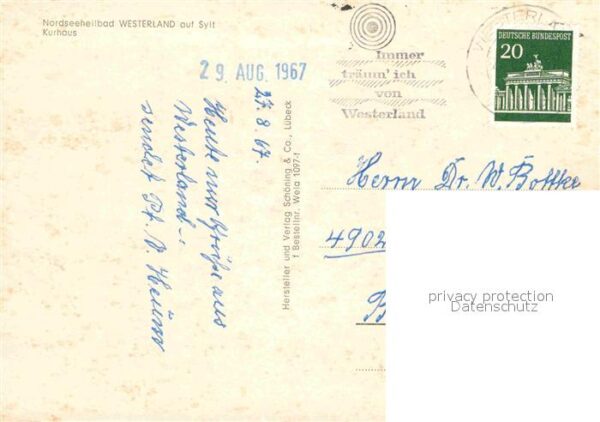 Nordseeheilbad WESTERLAND auf Sylt
Kurhaus
29. AUG. 1967
27.8.67.
Heute nur Grüße aus
Westerland.
sendet
Hersteller und Verlag Schöning & Co., Lübeck
1 Bestellnr. Wela 1097-1
Immer
träum' ich
von
Westerland
WESTERLA
DEUTSCHE BUNDESPOST
20
Herrn Dr. W. Bottke
4902
B
privacy protection
Datenschutz